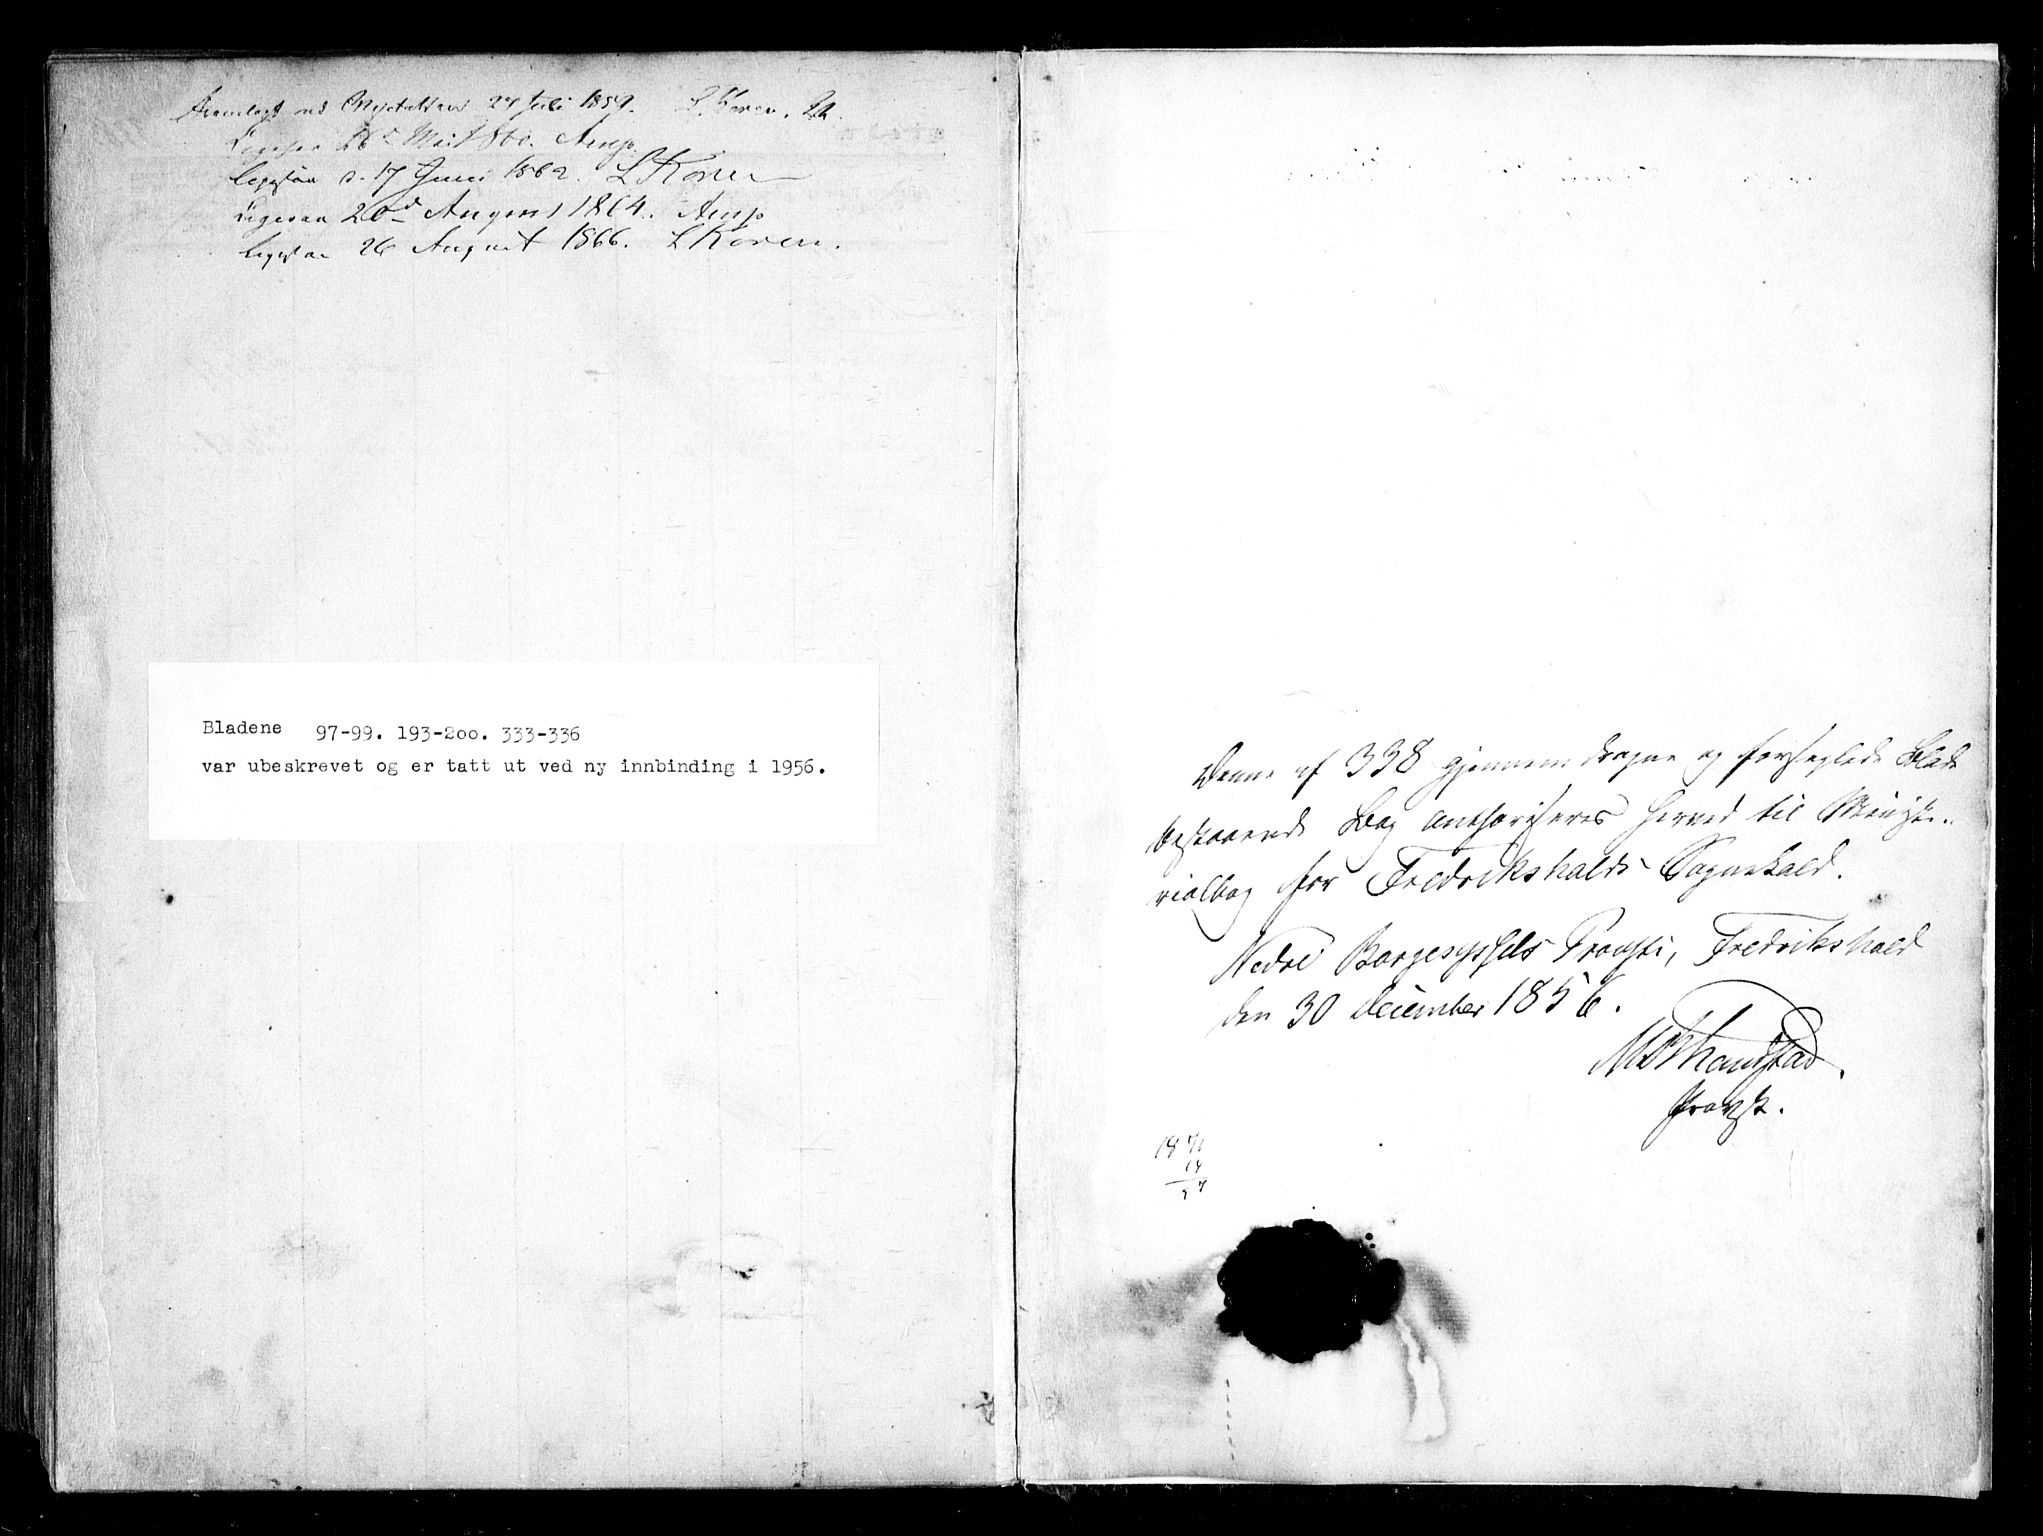 Fremlagt ved Visitatsen 27 Juli 1859. L Koren.
Ligesaa 16de Mai 1860. Arup
Ligesaa d. 17 Juni 1862. L Koren
Ligesaa 20de August 1864. Arup
Ligesaa 26 August 1866. L Koren.
Bladene 97-99. 193-2oo. 333-336
var ubeskrevet og er tatt ut ved ny innbinding i 1956.
Denne af 338 gjennemdragne og forseglede Blade
bestaaende Bog authoriseres herved til Ministe-
rialbog for Fredrikshalds Sognekald.
Nedre Borgesyssels Provsti, Fredrikshald
den 30 December 1856.
Provst.
1871
14
57